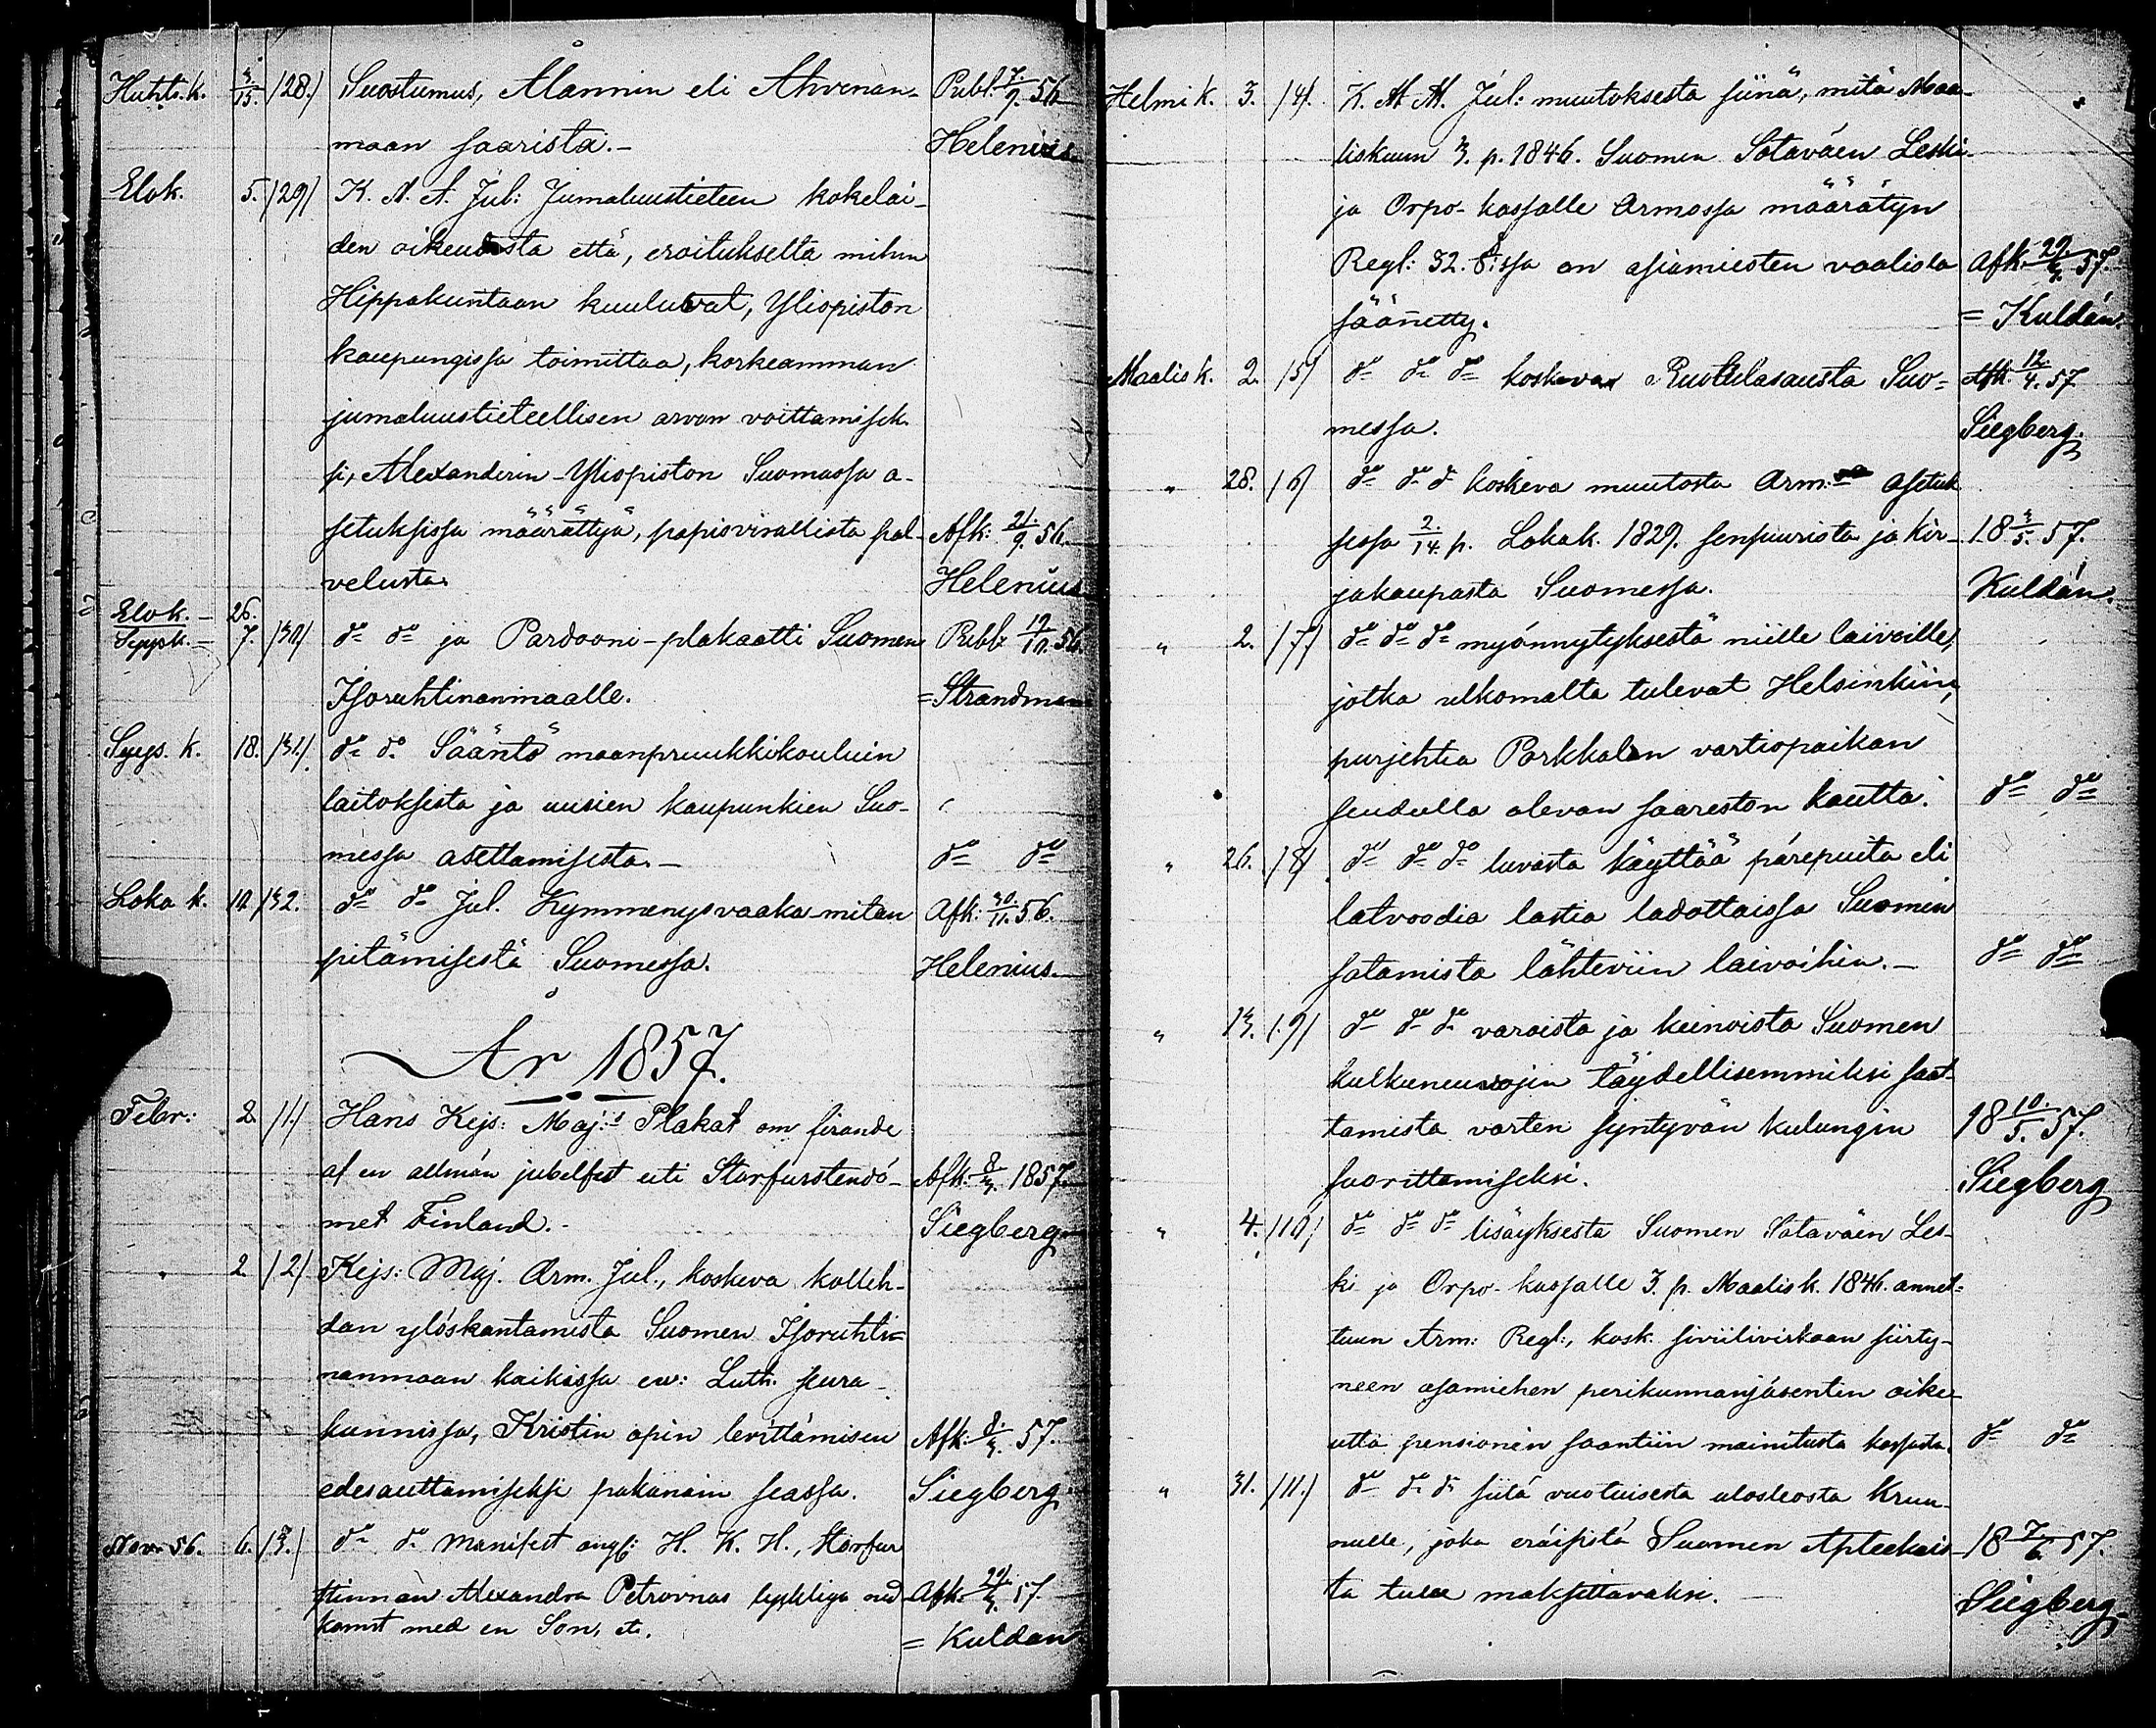 Huhti.k. 3./15. /28./ Suostumus, Ålannin eli Ahvenan- Publ. 7./9. 56
maan saarista.- Helenius.
Elok. 5. /29/ K. M. A. Jul: Jumaluustieteen kokelai-
den oikeudesta että, eroitukselta mihin
Hippakuntaan kuuluvat, Yliopiston
kaupungissa toimittaa, korkeamman
jumaluustieteellisen arvon voittamisek-
si, Alexanderin-Yliopiston Suomassa a-
setuksissa määrättyä, papisvirallista pal- Afk: 21./9. 56.
velusta. Helenius
Elok.- 26.
Syysk.- 7. /30/ do do ja Pardooni-plakaatti Suomen Publ: 19/10. 56.
Isoruhtinanmaalle. =Strandman
Syys. k. 18. /31./ do do Sääntö maanpruukkikouluin
laitoksista ja uusien kaupunkien Suo-
messa asettamisesta.- do do
Loka k. 10. /32. do do Jul. Kymmenysvaaka-mitan Afk: 30./11. 56.
pitämisestä Suomessa. Helenius.-
År 1857.
Febr: 2. /1./ Hans Kejs: Maj:s Plakat om firande
af en allmän jubelfest uti Storfurstendö- Afk: 8/3. 1857.
met Finland.- Siegberg
" 2. /2./ Kejs: Maj. Arm. Jul., koskeva kolleh-
dan ylöskantamista Suomen Isoruhti=
nanmaan kaikissa ev: Luth. seura-
kunnissa, Kristin opin levittämisen Afk: 8./3. 57.
edesauttamiseksi pakanain seassa. Siegberg
Nov. 56. 6. /3./ do do Manifest angf: H. K. H., Storfur
stinnan Alexandra Petrovnas lyckliga ned Afk: 29/3. 57.
komst med en Son, etc. = Kuldan
Helmi k. 3. /4/. K. M. A. Jul: muutoksesta siinä, mitä Maa-
liskuun 3. p. 1846. Suomen Sotaväen Leski-
ja Orpo-kassalle Armossa määrätyn
Regl: 32. §:ssa on asiamiesten vaalista Afk. 29./3. 57.
säänetty. = Kuldán.
Maalis k. 2. /5/ do do do koskevan Ruotulasausta Suo= Afk. 12./4. 57
messa. Siegberg.
" 28. /6/ do do do koskeva muutosta Arm: asetuk
sessa 2./14. p. Lokak. 1829. sensuurista ja kir- 18 3/5. 57.
jakaupasta Suomessa. Kuldán.
" 2. /7/ do do do myönnytyksestä niille laivoille,
jotka ulkomalta tulevat Helsinkiin,
purjehtia Porkkalan vartiopaikan
seudulla olevan saareston kautta. do do
" 26. /8/ do do do luvasta käyttää pärepuita eli
latvoodia lastia ladottaissa Suomen
satamista lähteviin laivoihin.- do do
" 13. /9/ do do do varoista ja keinoista Suomen
kulkuneuvojen täydellisemmiksi saat-
tamista varten syntyvän kulungin 18 10./5. 57.
suorittamiseksi. Siegberg
" 4. /10/ do do do lisäyksesta Suomen Sotaväen Les-
ki ja Orpo-kassalle 3. p. Maalis k. 1846. annet=
tuun Arm: Regl:, kosk. siviilivirkaan siirty-
neen osamiehen perikunnanjäsenten oike-
utta pensionin saantiin mainitusta kassasta. do do
" 31. /11./ do do do siitä vuotuisesta ulosteosta Kruu-
nulle, joka eräisistä Suomen Apteekeis- 18 7/6. 57.
ta tulee maksettavaksi.- Siegberg